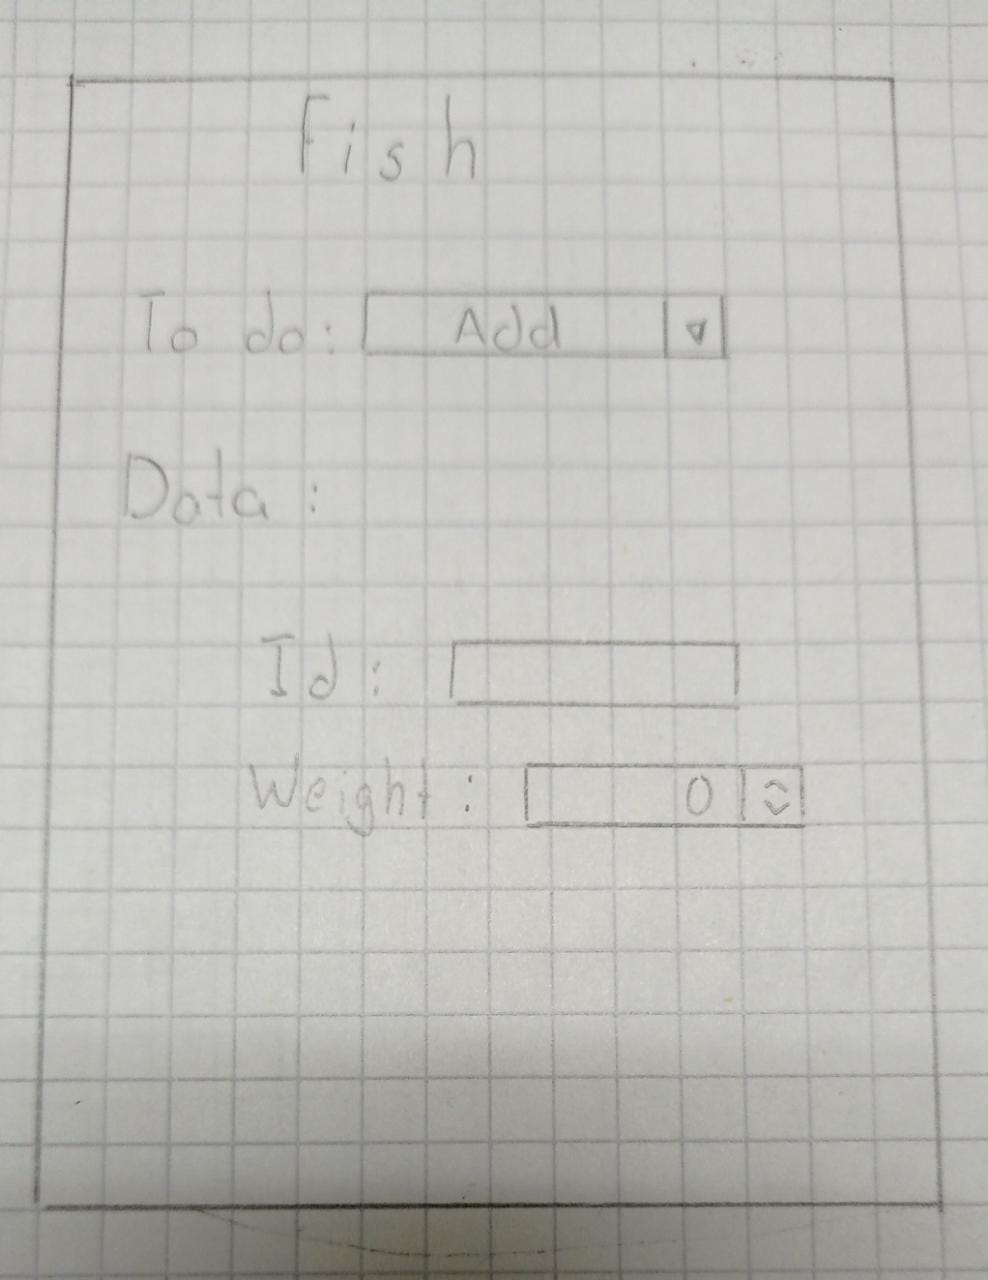 Fish
To do: Add
Data:
Id:
Weight: 0